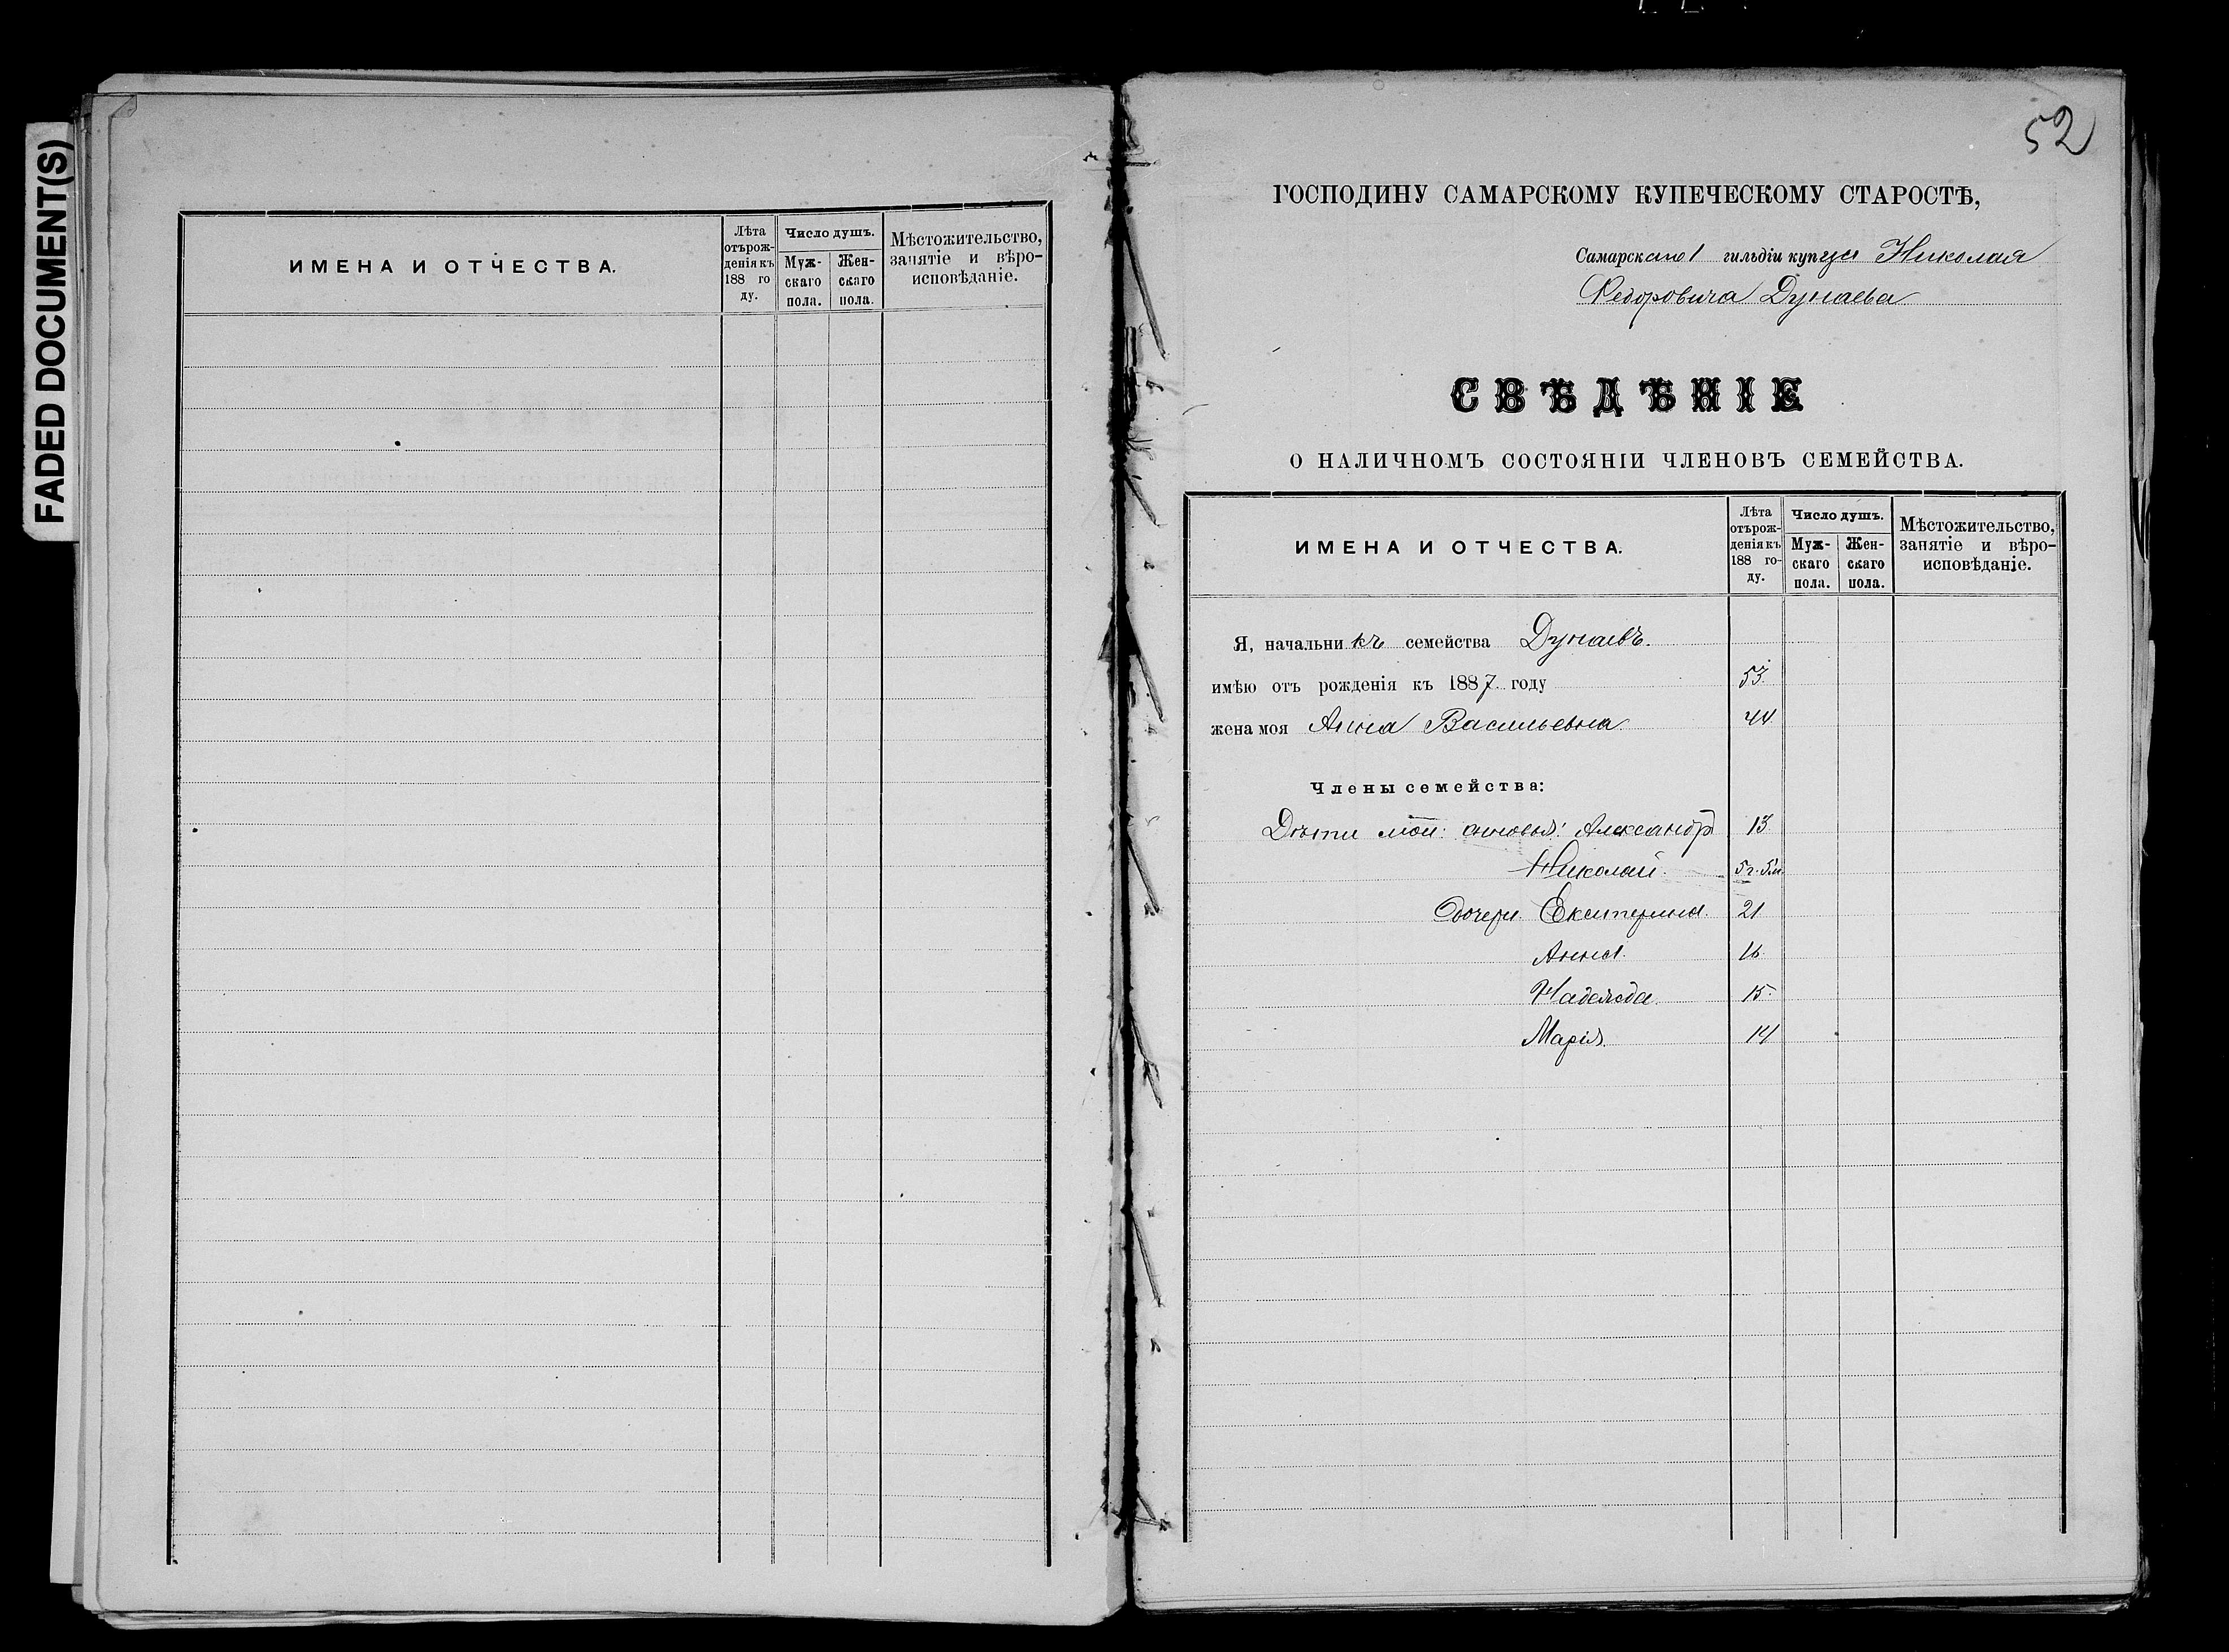 FADED DOCUMENT(S)
ИМЕНА И ОТЧЕСТВА.
Лѣта
отърож-
денія къ
188 го
ду.
Число душъ.
Муж-
скаго
пола.
Жен-
скаго
пола.
Мѣстожительство,
занятіе и вѣро-
исповѣданіе.
52
ГОСПОДИНУ САМАРСКОМУ КУПЕЧЕСКОМУ СТАРОСТѢ,
Самарскаго 1 гильдіи купца Николая
Федоровича Дунаева
СВѢДѢНІЕ
О НАЛИЧНОМЪ СОСТОЯНІИ ЧЛЕНОВЪ СЕМЕЙСТВА.
ИМЕНА И ОТЧЕСТВА.
Лѣта
отърож-
денія къ
188 го-
ду.
Число душъ.
Муж-
скаго
пола.
Жен-
скаго
пола.
Мѣстожительство,
занятіе и вѣро-
исповѣданіе.
Я, начальникъ семейства Дунаевъ.
имѣю отъ рожденія къ 1887 году 53.
жена моя Анна Васильевна 44
Члены семейства:
Дѣти мои: сыновья: Александръ 13
Николай 5 г. 5 м.
Дочери Екатерина 21
Анна 16
Надежда 15.
Марія. 14